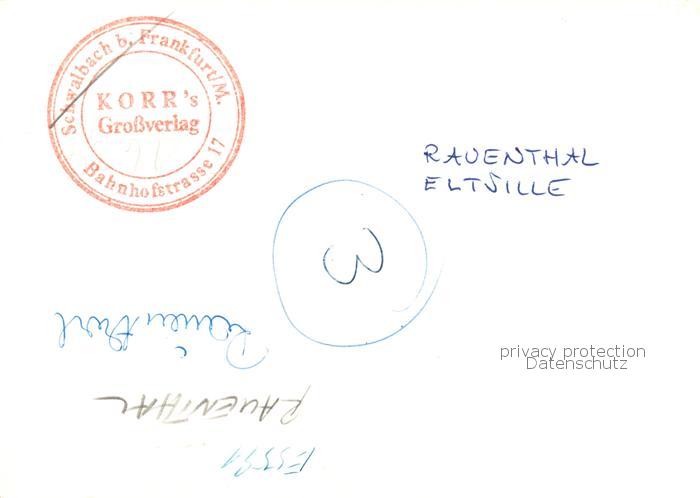 Schwalbach b. Frankfurt/M.
KORR's
Großverlag
Bahnhofstrasse 17
RAUENTHAL
ELTVILLE
3
privacy protection
Datenschutz
Rauenthal
RAUENTHAL